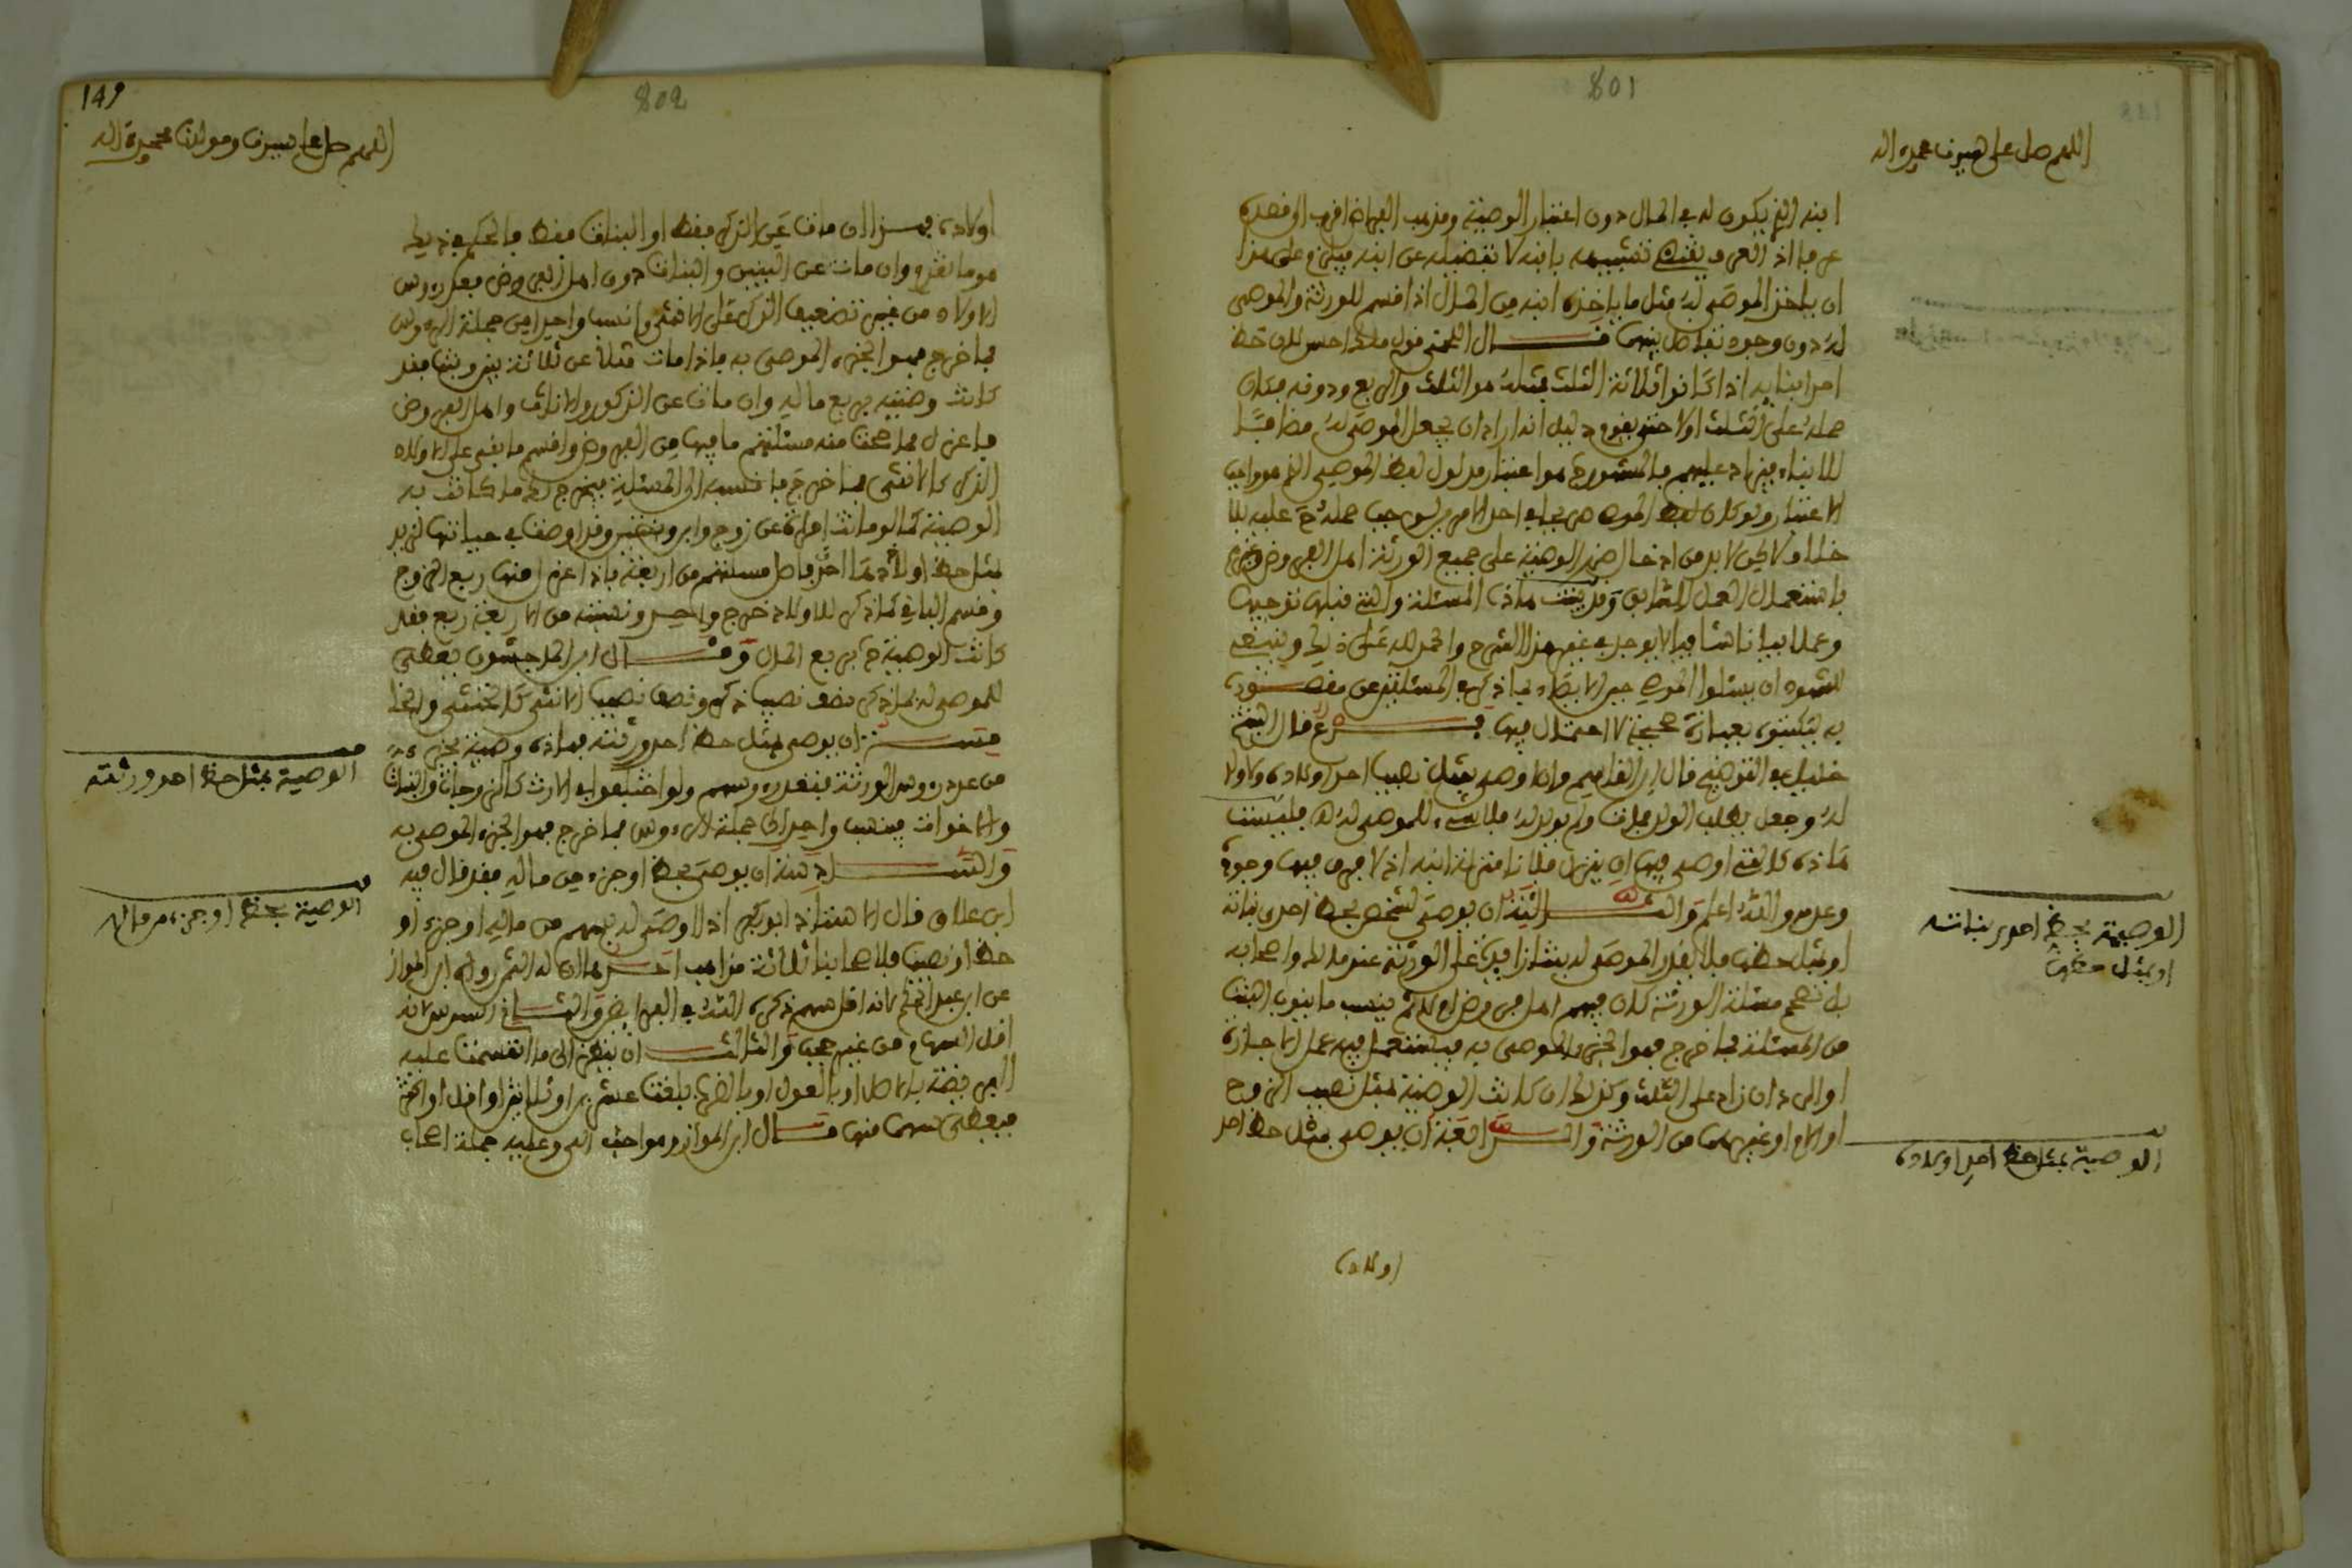 801
اللهم صل على سيدنا محمد واله
ابنه الذي يكون له في المال دون اعتبار الوصية ومذهب الفراض اقرب الى قصده
ان ياخذ الموصى له مثل ما ياخذه ابنه من المال اذا قسم للورثة والموصى
له دون وجود تفاضل بينهما قال اللخمي قول مالك احسن للن حظ
احد ابنائه اذا كانوا ثلاثة الثلث فمثله هو الثلث والربع ودونه فكان
حمله على الثلث اولا حتى يقوم دليل انه اراد ان يجعل الموصى له مضافا
للابناء فيزاد عليهم فالمشهور هو اعتبار مدلول لفظ الموصي الذي هو واجب
خلاف لاكن لا بد من ادخال ضرر الوصية على جميع الورثة اهل الفروض وغيرهم
باستعمال العمل السابق وقد بينت هاذه المسئلة والتي قبلها توجيها
وعملا بيانا شافيا لا يوجد في غير هذا الشرح والحمد لله على ذلك وينبغي
للشهود ان يسئلوا الموصي حين الايصاء بما ذكر في المسئلتين عن مقصوده
به فيكتبوه بعبارة صحيحة لا احتمال فيها فرع قال الشيخ
خليل في التوضيح قال ابن القاسم وان اوصى بمثل نصيب احد اولاده ولا ولد
له وجعل يطلب الولد فمات ولم يولد له فلا شيء للموصى له فليست
هاذه كالتي اوصى فيها ان ينزل فلان منزلة ابنه اذ لا فرق فيها وجوده
وعدمه والله اعلم والثالثة ان يوصى لشخص بحظ احدى بناته
او بمثل حظها فلا يقدر الموصى له بنتا زايدة على الورثة عند مالك واصحابه
بل تصح مسئلة الورثة كان فيهم اهل فرض ام لا ثم ينسب ما ينوب البنت
من المسئلة فما خرج فهو الجزء الموصى به فيستعمل فيه عمل الاجازة
او الرد ان زاد على الثلث وكذلك ان كانت الوصية بمثل نصيب الزوج
او الام او غيرهما من الورثة والرابعة ان يوصى بمثل حظ احد
اولاده
الوصية بحظ احدى بناته
او بمثل حظها
الوصية بمثل حظ احد اولاده
149
802
اللهم صل على سيدنا ومولانا محمد واله
اولاده فهذا ان مات عن الذكر فقط او البنات فقط فالحكم في ذلك
هو ما تقدم وان مات عن البنين والبنات دون اهل الفروض فعد رءوس
الاولاد من غير تضعيف الذكر على الانثى وانسب واحدا من جملة الرءوس
فما خرج فهو الجزء الموصى به فاذا مات مثلا عن ثلاثة بنين وبنت فقد
كانت وصيته بربع ماله وان مات عن الذكور والاناث واهل الفروض
فاعزل مما صحت منه مسئلتهم ما فيها من الفروض واقسم ما بقي على الاولاد
الذكر كالانثى فما خرج فانسبه الى المسئلة فيخرج لك ما كانت به
الوصية كما لو ماتت امراة عن زوج وابن وبنتين وقد اوصت في حياتها لزيد
بمثل حظ احد اولادها فاصل مسئلتهم من اربعة فاذا عزل منها ربع الزوج
وقسم الباقي كما ذكر للاولاد خرج واحد ونسبته من الاربعة ربع فقد
كانت الوصية بربع المال وقال ابن الماجشون يعطى
للموصى له بما ذكر نصف نصيب ذكر ونصف نصيب الانثى كالخنثى والخا
مسة ان يوصى بمثل حظ احد ورثته فهاذه وصية بجزء
من عدد رءوس الورثة فتعد رءوسهم ولو اختلفوا في الارث كالزوجات والبنات
والاخوات فينسب واحد الى جملة الرءوس فما خرج فهو الجزء الموصى به
والسادسة ان يوصى بحظ او جزء من ماله فقد قال فيه
ابن علاق قال الاستاذ ابو بكر اذا اوصى له بسهم من ماله او جزء او
حظ او نصيب فلاصحابنا ثلاثة مذاهب احدها ان له الثمن رواه ابن المواز
عن ابن عبد الحكم لانه اقل سهم ذكره الله في الفرايض والثاني السدس لانه
اقل السهام من غير حجب والثالث ان ينظر الى ما انقسمت عليه
الفريضة بالاصل او بالعول او بالضرب بلغت عشرين او ثلاثين او اقل او اكثر
فيعطى سهما منها قال ابن المواز وهو احب الي وعليه جملة اصحاب
الوصية بمثل حظ احد ورثته
الوصية بحظ او جزء من ماله